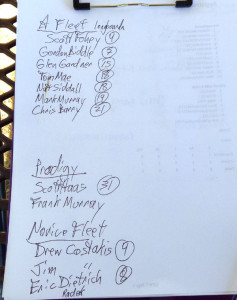 A Fleet
Scott Tokey 9
Gordon Biddle 5
Glen Gardner 15
Tom Mae 18
Nat Siddall 18
Mark Murray 19
Chris Barry 21
Prodigy
Scott Haas 31
Frank Murray
Novice Fleet
Drew Costakis 9
Jim "
Eric Dietrich